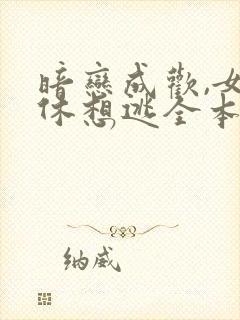 暗戀成歡,女
休想逃全本
纳威